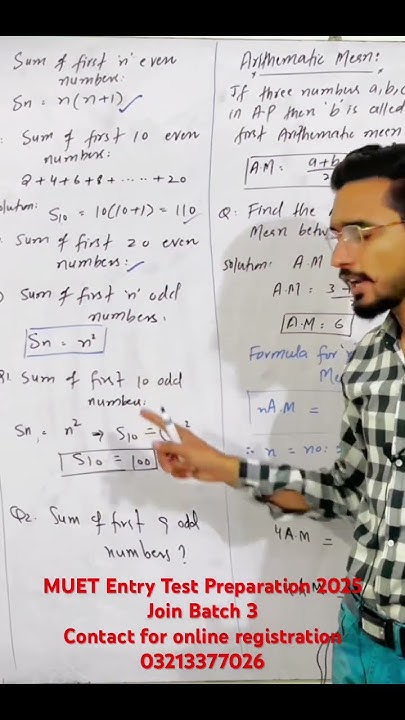 Sum of first 'n' even
numbers:
Sn = n(n+1)
Sum of first 10 even
numbers:
2+4+6+8+ ...... +20
olution: S10 = 10(10+1) = 110
Sum of first 20 even
numbers:
Sum of first 'n' odd
numbers.
Sn = n²
Q1. Sum of first 10 odd
number:
Sn = n² → S10 =
S10 = 100
Q2. Sum of first 9 odd
numbers?
Arithematic Mean:
If three numbers a,b,c
in A.P then 'b' is called
first Arithematic mean
A.M = a+b
Q: Find the
Mean betw
Solution: A.M
A.M = 3+
A.M = 6
Formula for 'n'
Me
nA.M =
∴ n = no:
4A.M =
MUET Entry Test Preparation 2025
Join Batch 3
Contact for online registration
03213377026